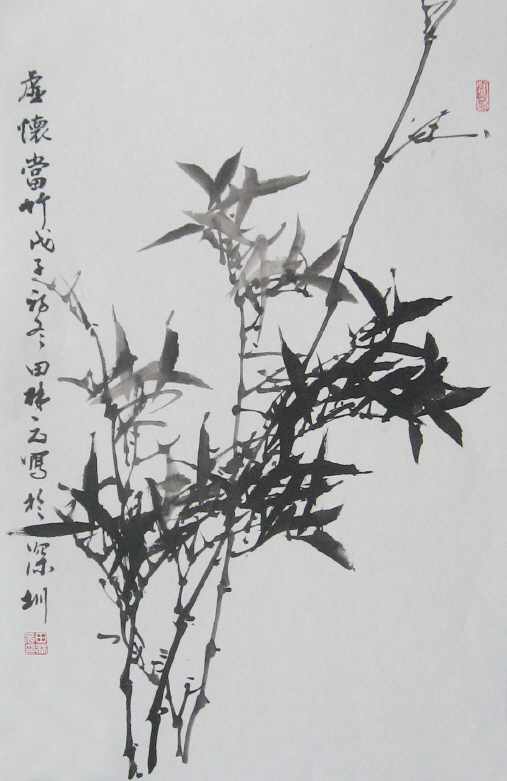 虛懷當竹戊子初冬田林寫於深圳